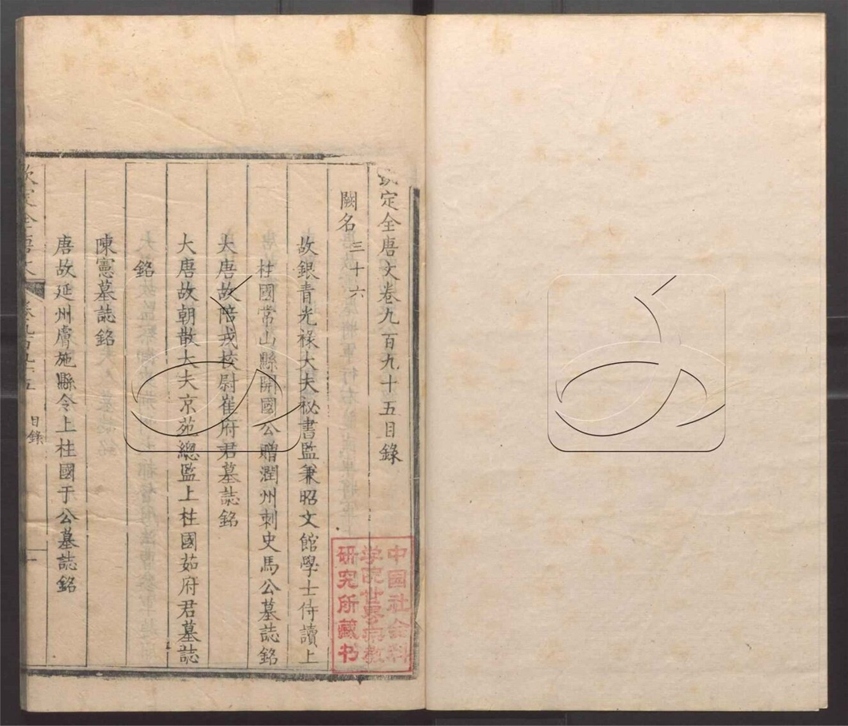 欽定全唐文卷九百九十五目錄
闕名三十六
故銀青光祿大夫祕書監兼昭文館學士侍讀上
柱國常山縣開國公贈潤州刺史馬公墓誌銘
大唐故陪戎校尉崔府君墓誌銘
大唐故朝散大夫京苑總監上柱國茹府君墓誌
銘
陳憲墓誌銘
唐故延州膚施縣令上柱國于公墓誌銘
欽定全唐文
卷九百九十五
目錄
一
中國社會科
學院世界宗教
研究所藏书